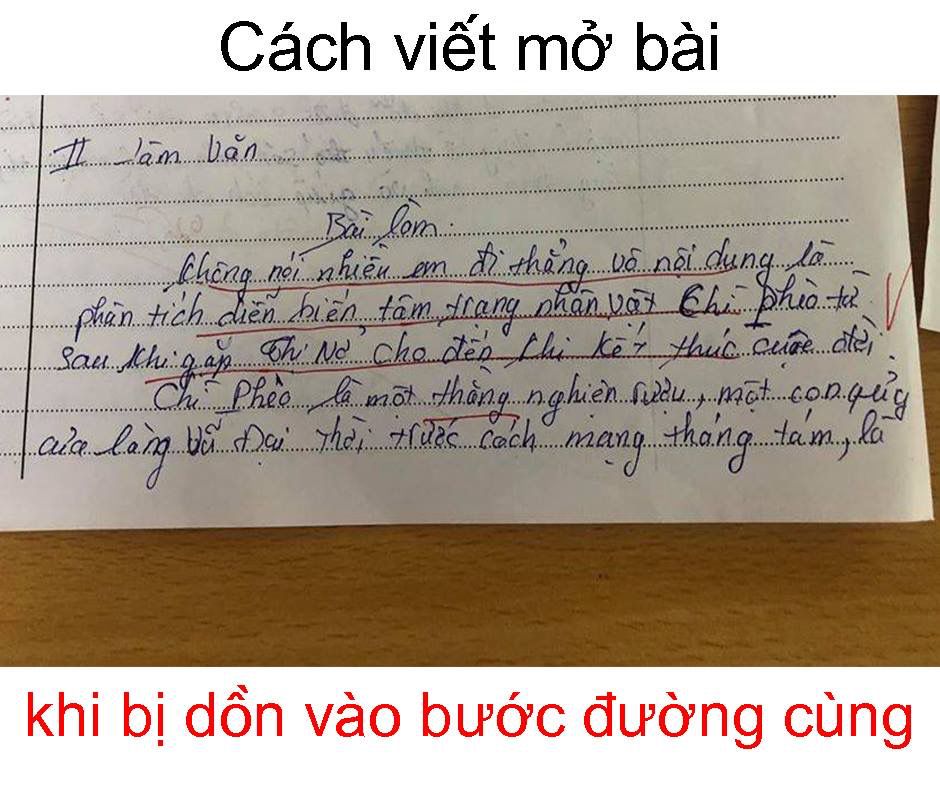 Cách viết mở bài
II Làm văn
Bài làm.
Không nói nhiều em đi thẳng vô nội dung là
phân tích diễn biến tâm trạng nhân vật Chí Phèo từ
sau khi gặp Thị Nở cho đến khi kết thúc cuộc đời.
Chí Phèo là một thằng nghiện rượu, một con quỷ
của làng Vũ Đại thời trước cách mạng tháng tám, là
khi bị dồn vào bước đường cùng